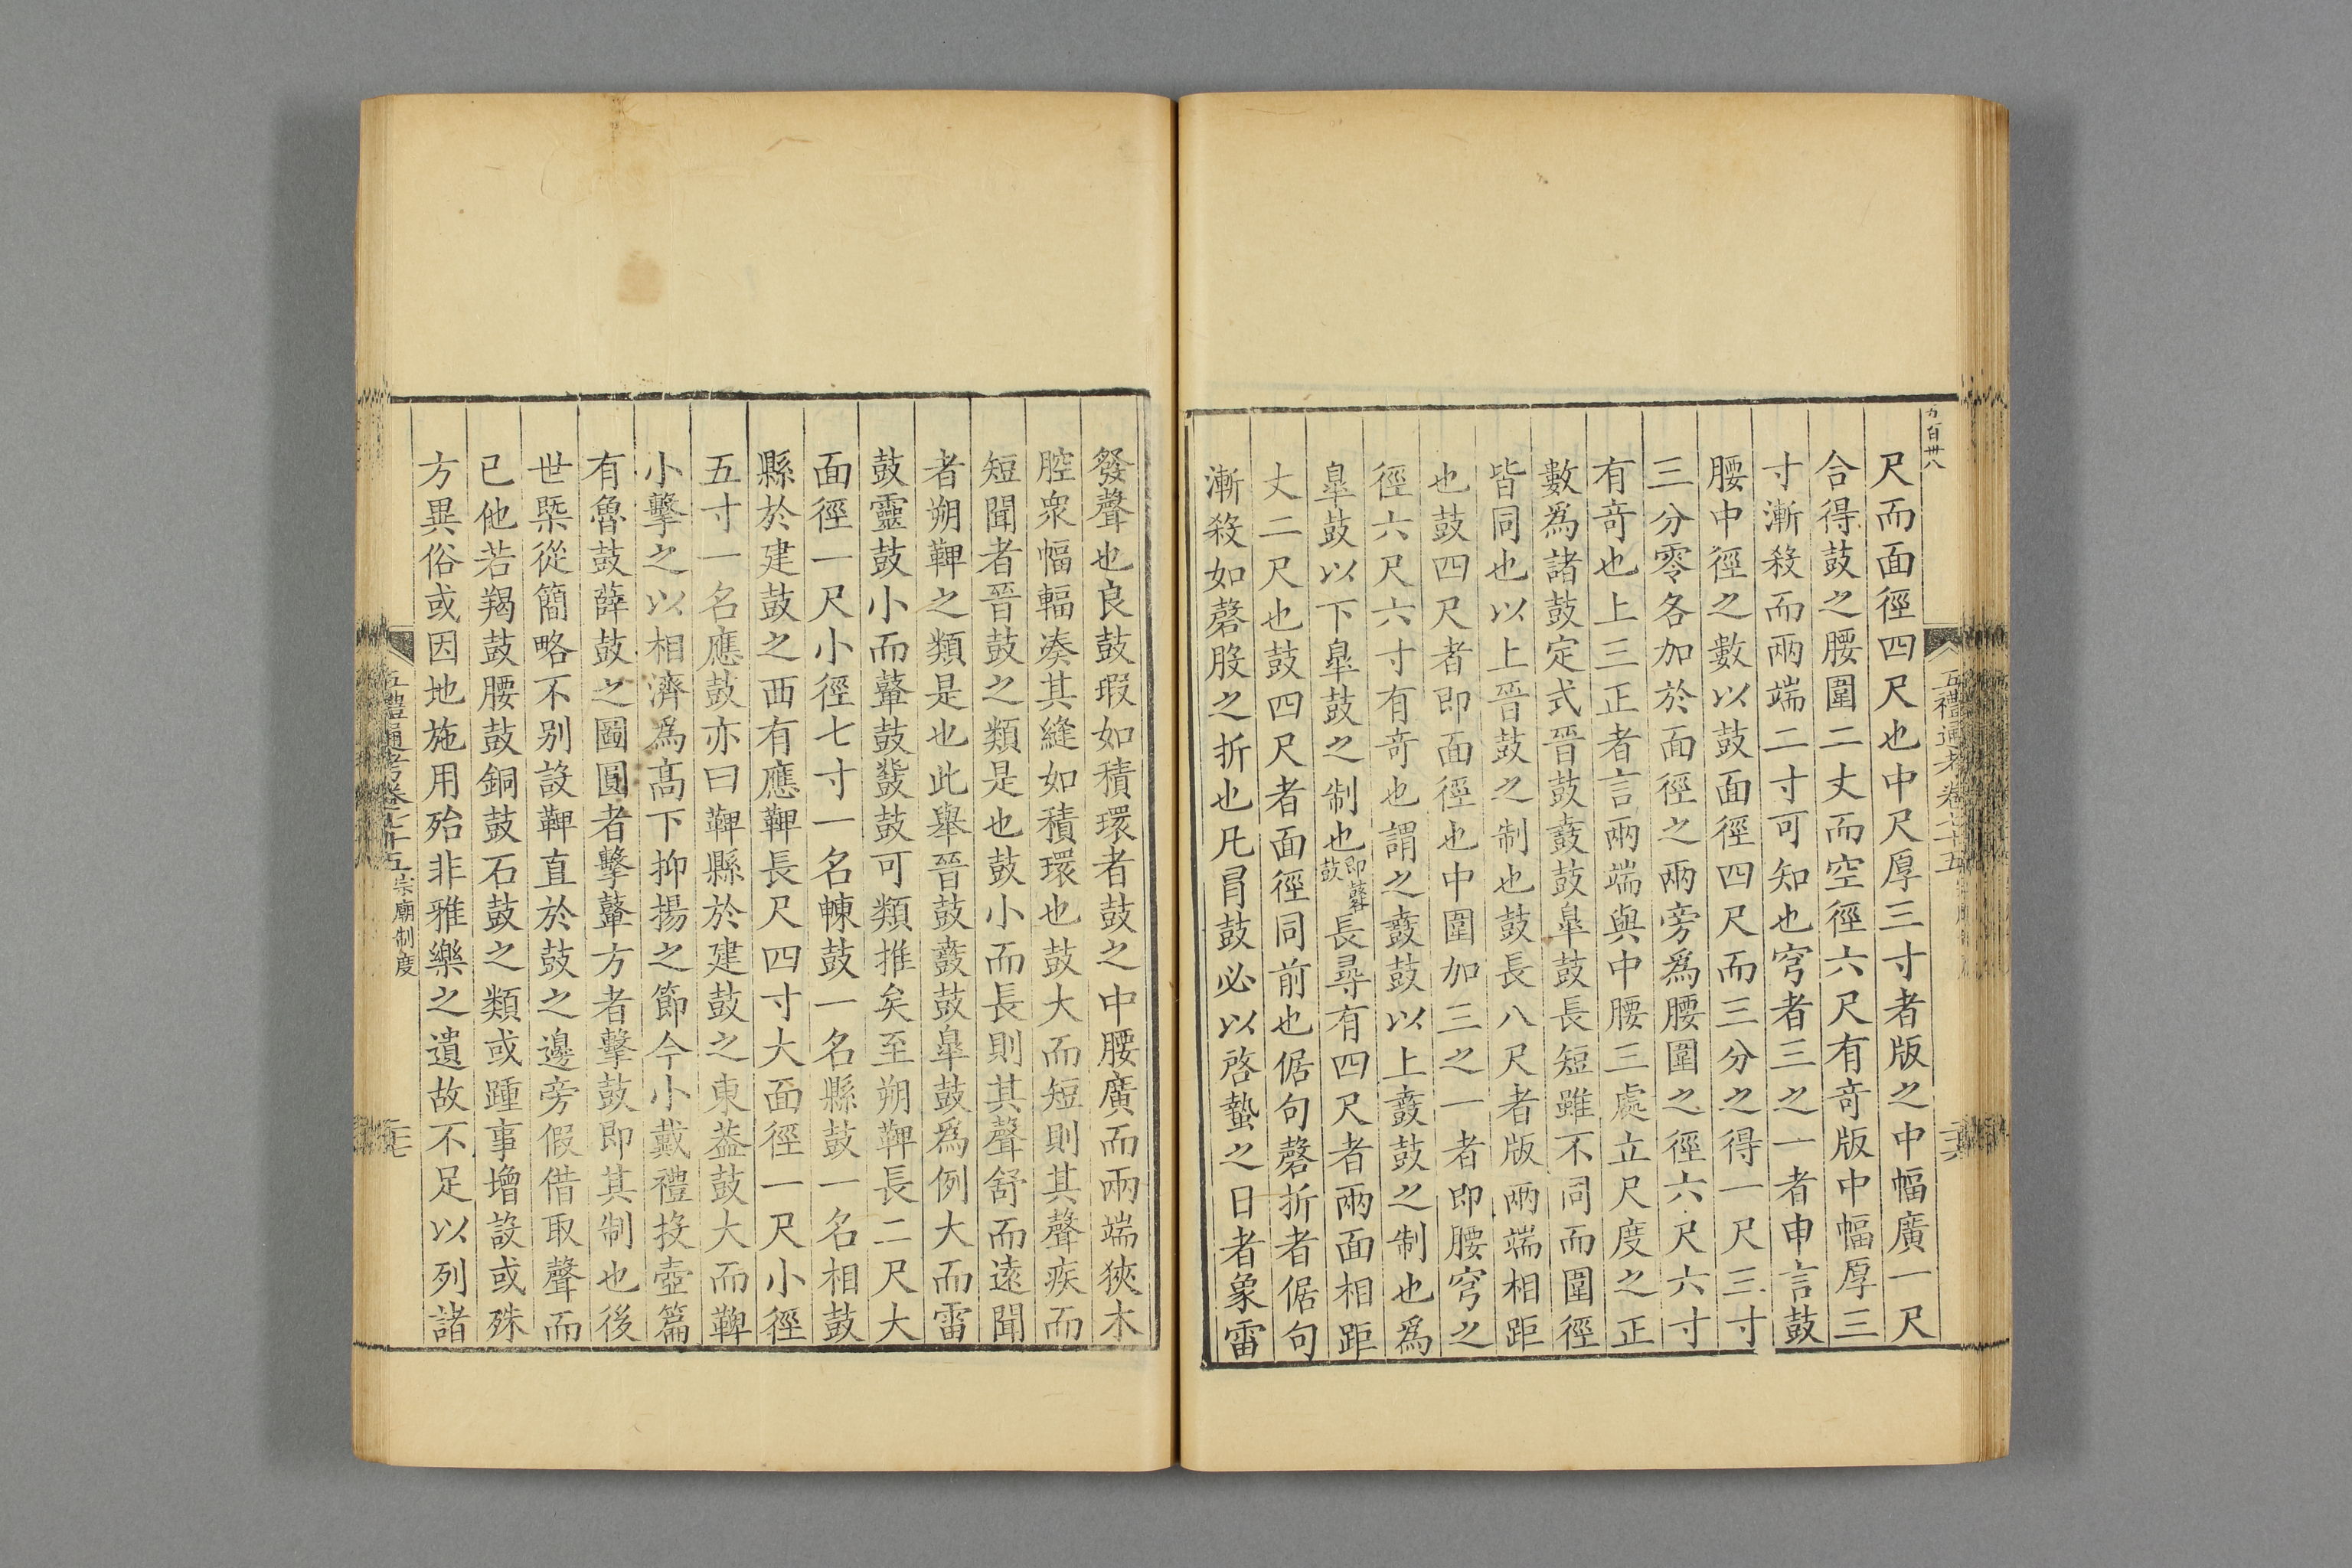 尺而面徑四尺也中尺厚三寸者版之中幅廣一尺
合得鼓之腰圍二丈而空徑六尺有奇版中幅厚三
寸漸殺而兩端二寸可知也穹者三之一者申言鼓
腰中徑之數以鼓面徑四尺而三分之得一尺三寸
三分零各加於面徑之兩旁為腰圍之徑六尺六寸
有奇也上三正者言兩端與中腰三處立尺度之正
數為諸鼓定式晉鼓鼖鼓臯鼓長短雖不同而圍徑
皆同也以上晉鼓之制也鼓長八尺者版兩端相距
也鼓四尺者即面徑也中圍加三之一者即腰穹之
徑六尺六寸有奇也謂之鼖鼓以上鼖鼓之制也為
臯鼓以下臯鼓之制也即鼛鼓長尋有四尺者兩面相距
丈二尺也鼓四尺者面徑同前也倨句磬折者倨句
漸殺如磬股之折也凡冒鼓必以啓蟄之日者象雷
五禮通考卷七十五
發聲也良鼓瑕如積環者鼓之中腰廣而兩端狹木
腔衆幅輻凑其縫如積環也鼓大而短則其聲疾而
短聞者晉鼓之類是也鼓小而長則其聲舒而遠聞
者朔鞞之類是也此舉晉鼓鼖鼓臯鼓為例大而雷
鼓靈鼓小而鼙鼓鼗鼓可類推矣至朔鞞長二尺大
面徑一尺小徑七寸一名朄鼓一名縣鼓一名相鼓
縣於建鼓之西有應鞞長尺四寸大面徑一尺小徑
五寸一名應鼓亦曰鞞縣於建鼓之東葢鼓大而鞞
小擊之以相濟為髙下抑揚之節今小戴禮投壺篇
有魯鼓薛鼓之圖圓者擊鼙方者擊鼓即其制也後
世槩從簡略不别設鞞直於鼓之邊旁假借取聲而
已他若羯鼓腰鼓銅鼓石鼓之類或踵事增設或殊
方異俗或因地施用殆非雅樂之遺故不足以列諸
五禮通考卷七十五 宗廟制度